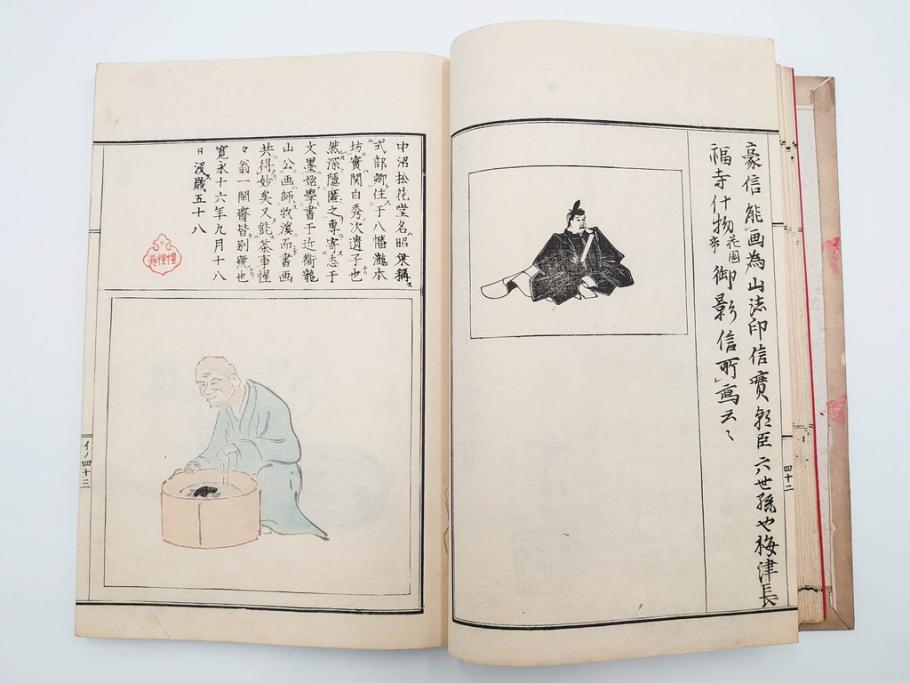 豪信能画為山法印信實朝臣六世孫也梅津長
福寺什物花園帝御影信所画云々
四十二
中沼松花堂名昭乗稱
式部卿住于八幡瀧本
坊實関白秀次遺子也
然深隱匿之專寄志于
文墨始學書于近衛龍
山公画師牧溪而書画
共得妙矣又能茶事惺
々翁一閑齋皆別號也
寛永十六年九月十八
日没歳五十八
惺惺翁
イノ四十二